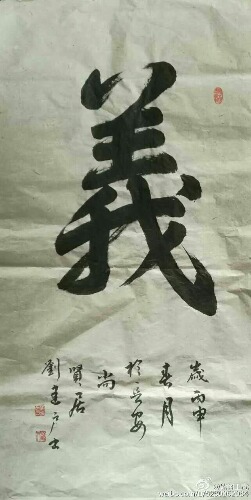 義
歲丙申
春月
於長安
尚
賢居
劉建